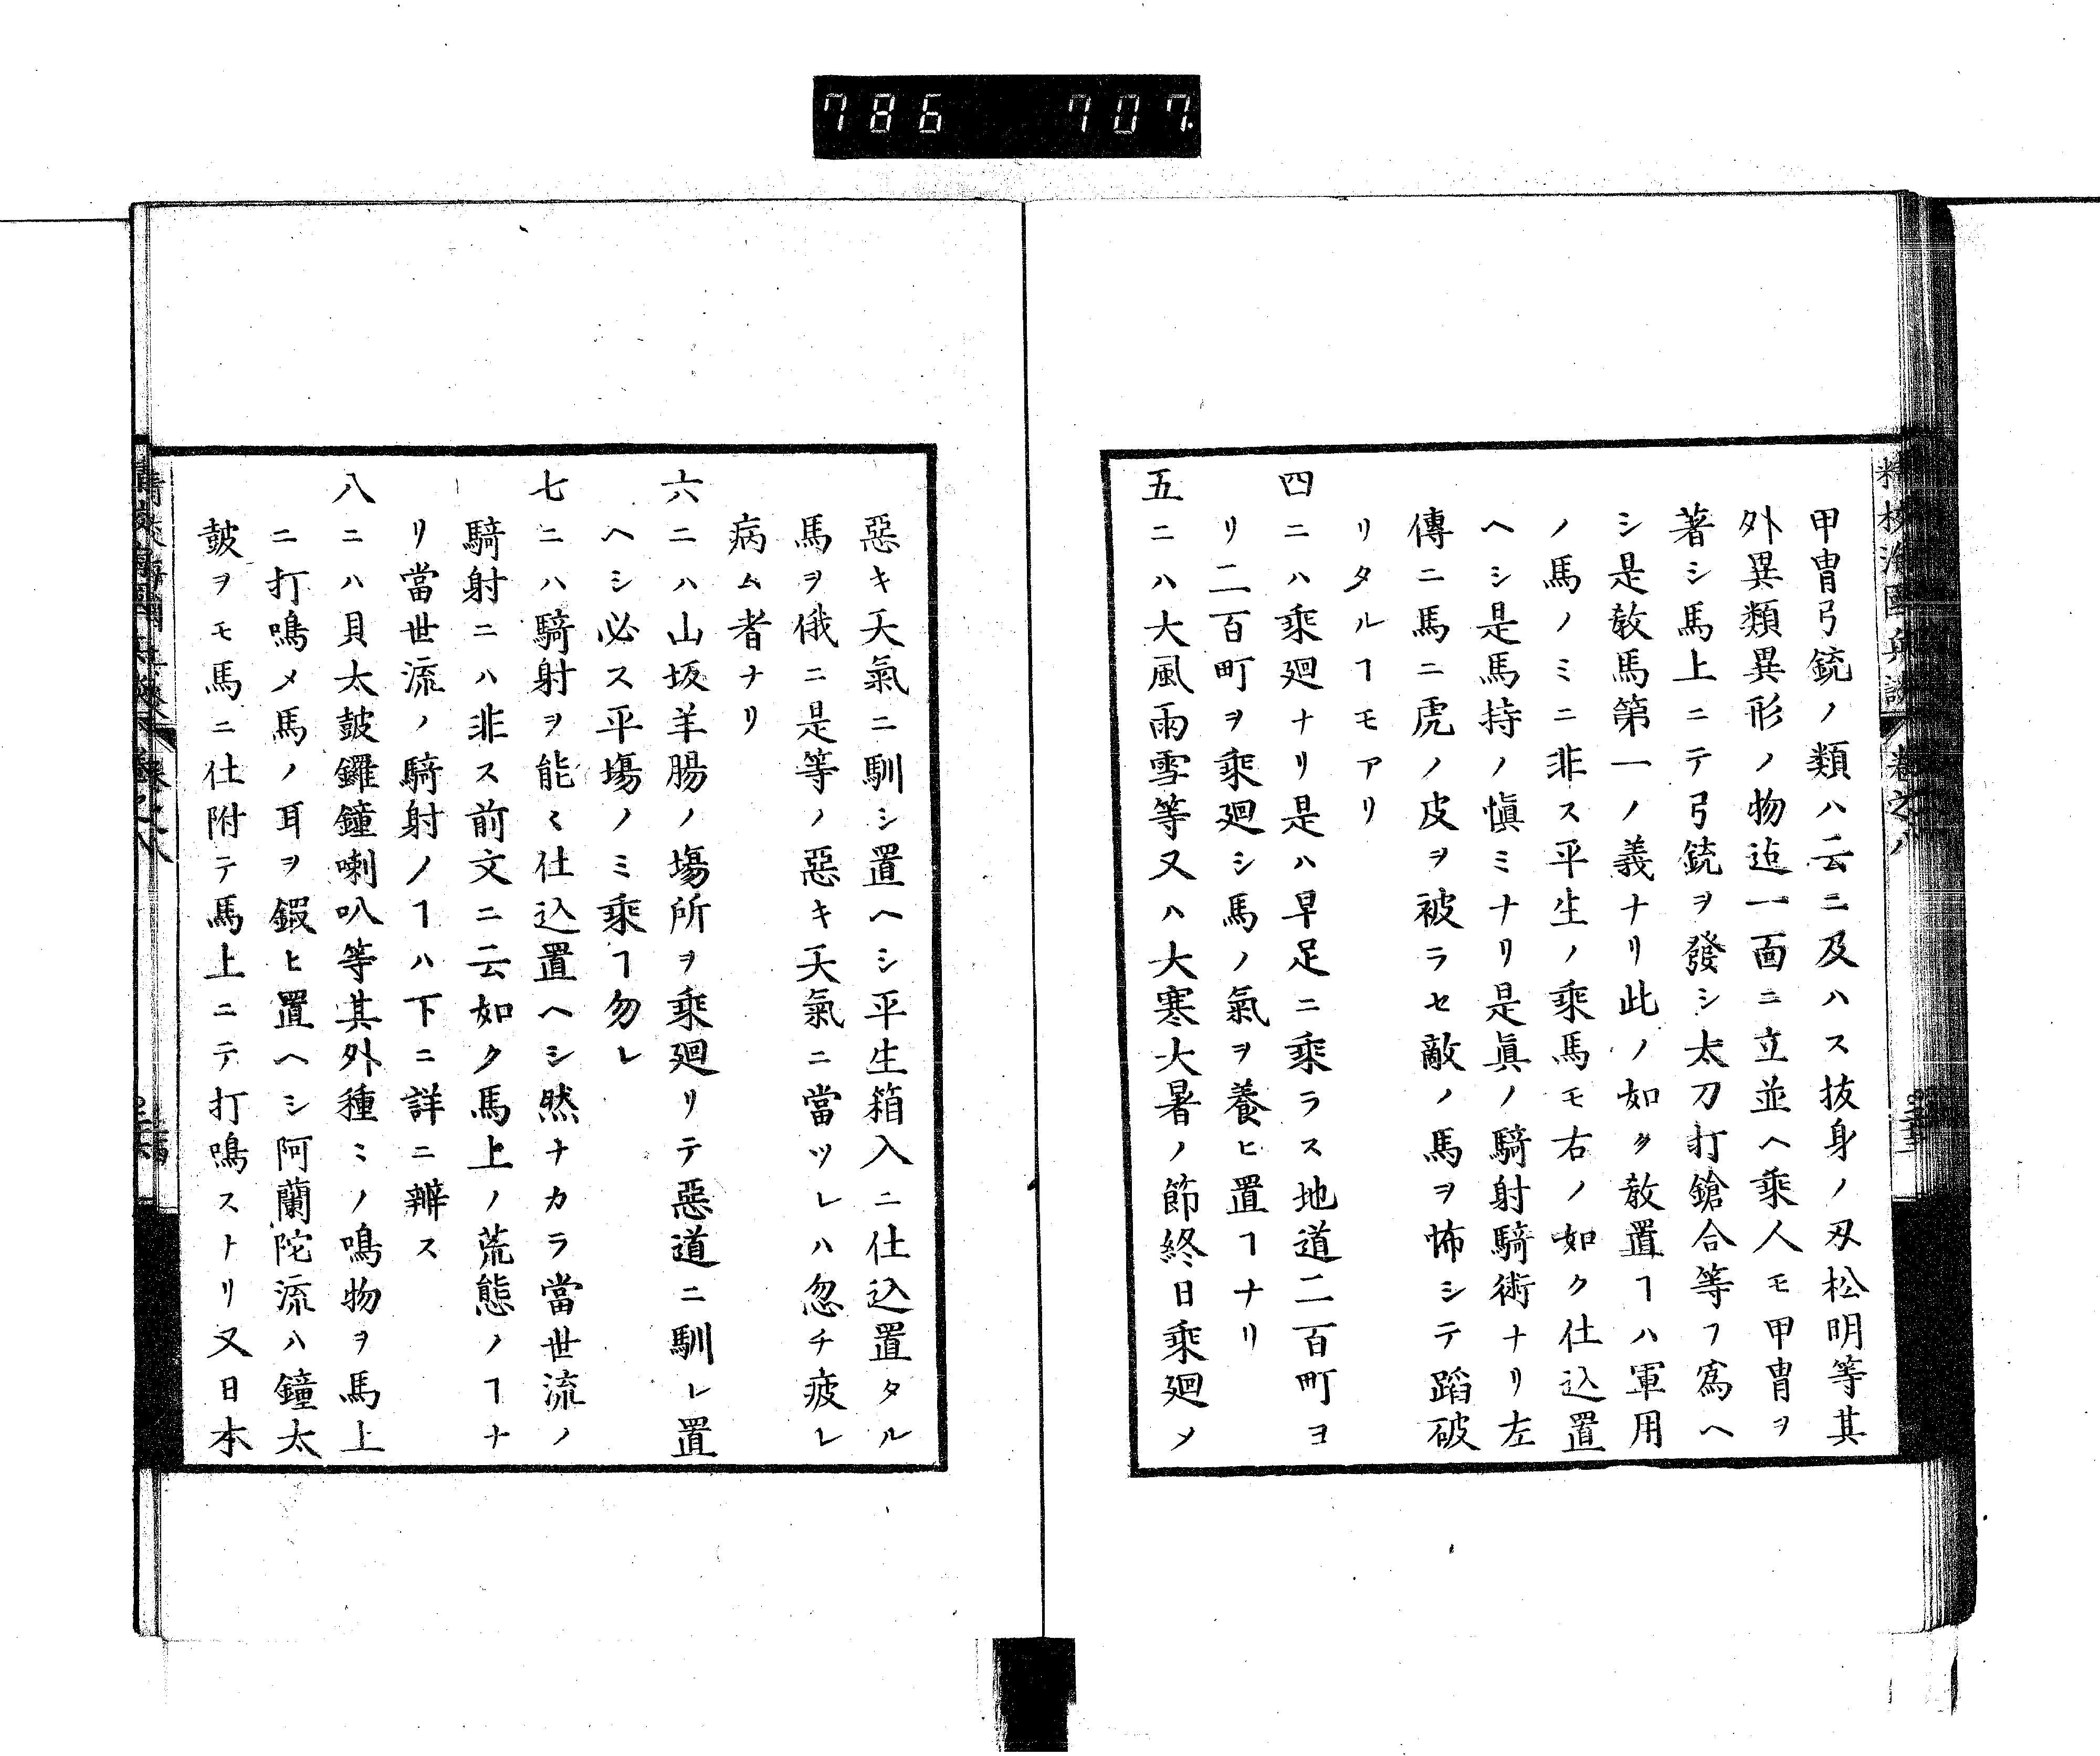 786 707
甲冑弓銃ノ類ハ云ニ及ハス抜身ノ刄松明等其
外異類異形ノ物迠一面ニ立並ヘ乘人モ甲冑ヲ
著シ馬上ニテ弓銃ヲ發シ太刀打鎗合等ヲ爲ヘ
シ是敎馬第一ノ義ナリ此ノ如ク敎置ヿハ軍用
ノ馬ノミニ非ス平生ノ乘馬モ右ノ如ク仕込置
ヘシ是馬持ノ愼ミナリ是眞ノ騎射騎術ナリ左
傳ニ馬ニ虎ノ皮ヲ被ラセ敵ノ馬ヲ怖シテ蹈破
リタルヿモアリ
四ニハ乘廻ナリ是ハ早足ニ乘ラス地道二百町ヨ
リ二百町ヲ乘廻シ馬ノ氣ヲ養ヒ置ヿナリ
五ニハ大風雨雪等又ハ大寒大暑ノ節終日乘廻メ
惡キ天氣ニ馴シ置ヘシ平生箱入ニ仕込置タル
馬ヲ俄ニ是等ノ惡キ天氣ニ當ツレハ忽チ疲レ
病ム者ナリ
六ニハ山坂羊腸ノ塲所ヲ乘廻リテ惡道ニ馴レ置
ヘシ必ス平塲ノミ乘ヿ勿レ
七ニハ騎射ヲ能〻仕込置ヘシ然ナカラ當世流ノ
騎射ニハ非ス前文ニ云如ク馬上ノ荒態ノヿナ
リ當世流ノ騎射ノヿハ下ニ詳ニ辨ス
八ニハ貝太皷鑼鐘喇叭等其外種〻ノ鳴物ヲ馬上
ニ打鳴メ馬ノ耳ヲ鍜ヒ置ヘシ阿蘭陀流ハ鐘太
皷ヲモ馬ニ仕附テ馬上ニテ打鳴ストリ又日本